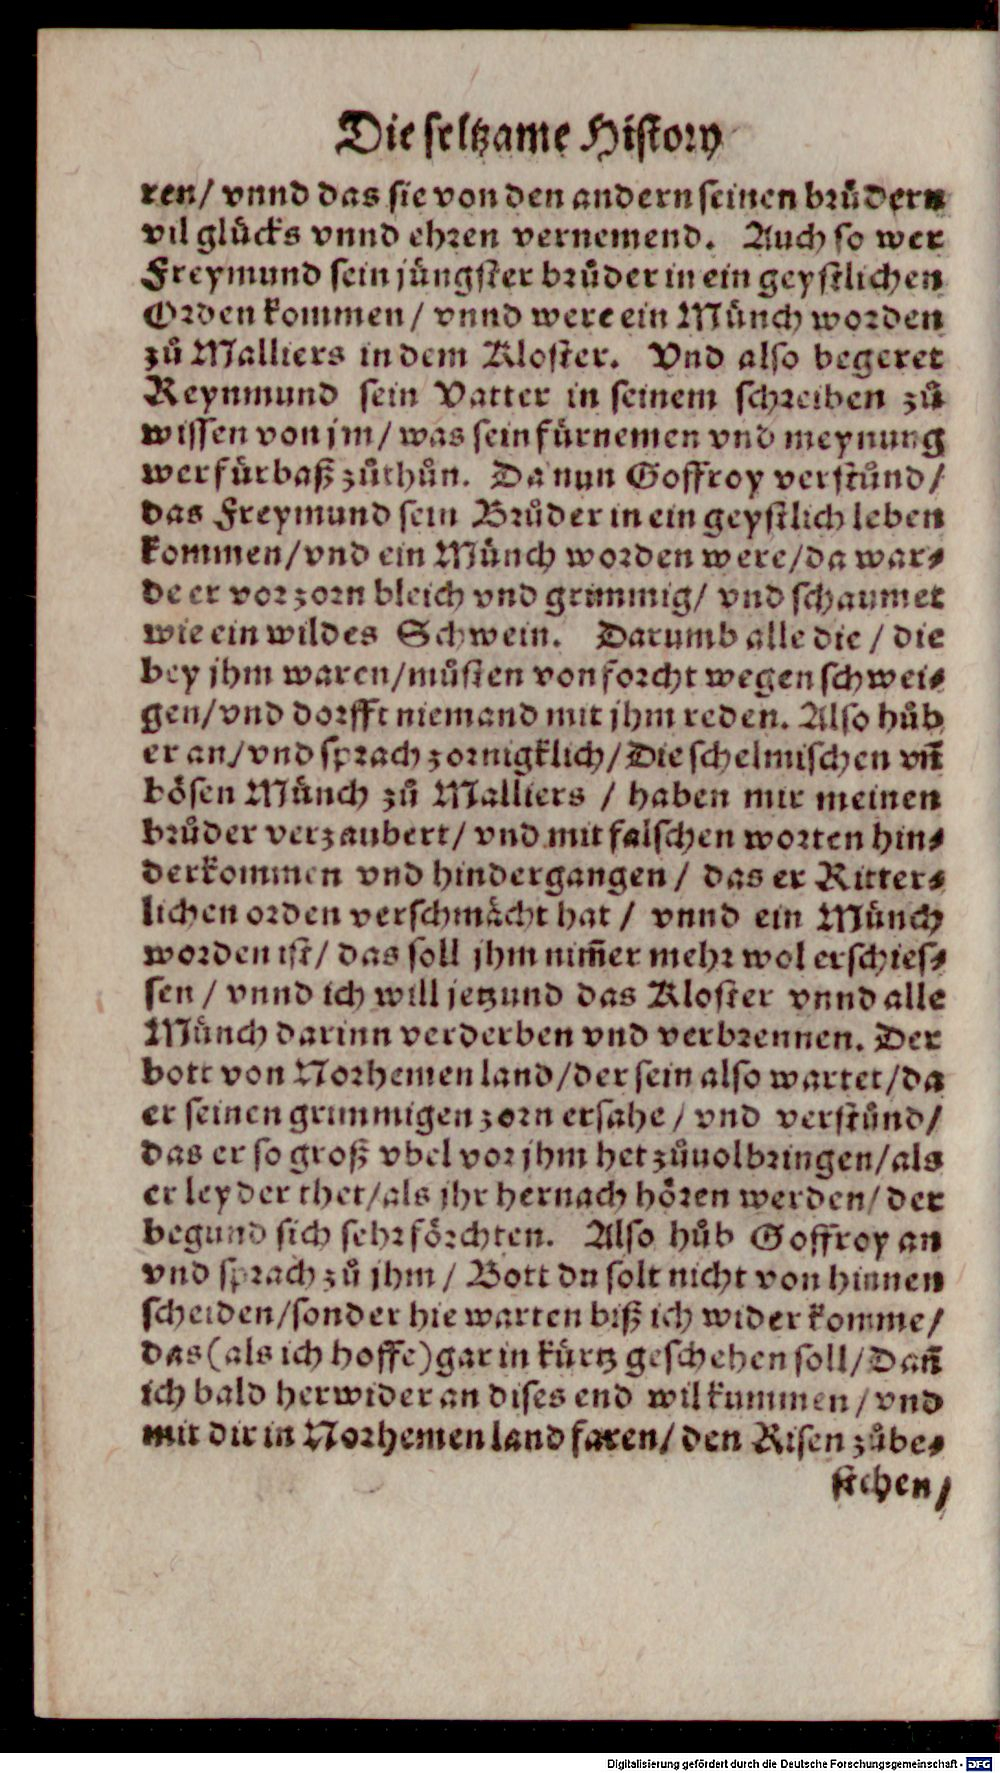 Die seltzame History
ren/ vnnd das sie von den andern seinen bruͤdern
vil gluͤcks vnnd ehren vernemend. Auch so wer
Freymund sein juͤngster bruͦder in ein geystlichen
Orden kommen/ vnnd were ein Muͤnch worden
zuͦ Malliers in dem Kloster. Vnd also begeret
Reynmund sein Vatter in seinem schreiben zuͦ
wissen von jm/ was sein fuͤrnemen vnd meynung
wer fuͤrbaß zuͦthuͦn. Da nun Goffroy verstuͦnd/
das Freymund sein Bruͦder in ein geystlich leben
kommen/vnd ein Muͤnch worden were/da war⸗
de er vor zorn bleich vnd grimmig/ vnd schaumet
wie ein wildes Schwein. Darumb alle die / die
bey jhm waren/muͦsten von forcht wegen schwei⸗
gen/vnd dorfft niemand mit jhm reden. Also huͦb
er an/vnd sprach zornigklich/Die schelmischen vñ
boͤsen Muͤnch zuͦ Malliers / haben mir meinen
bruͦder verzaubert/ vnd mit falschen worten hin⸗
derkommen vnd hindergangen/ das er Ritter⸗
lichen orden verschmaͤcht hat / vnnd ein Muͤnch
worden ist/ das soll jhm nim̃er mehr wol erschies⸗
sen / vnnd ich will jetzund das Kloster vnnd alle
Muͤnch darinn verderben vnd verbrennen. Der
bott von Norhemen land/der sein also wartet/da
er seinen grimmigen zorn ersahe/ vnd verstuͦnd/
das er so groß vbel vor jhm het zuͦuolbringen/als
er leyder thet/als jhr hernach hoͤren werden/ der
begund sich sehr foͤrchten. Also huͦb Goffroy an
vnd sprach zuͦ jhm/ Bott du solt nicht von hinnen
scheiden/sonder hie warten biß ich wider komme/
das (als ich hoffe) gar in kuͤrtz geschehen soll/Dañ
ich bald herwider an dises end wil kummen/ vnd
mit dir in Norhemen land faren/ den Risen zuͦbe⸗
stehen/
Digitalisierung gefördert durch die Deutsche Forschungsgemeinschaft - DFG